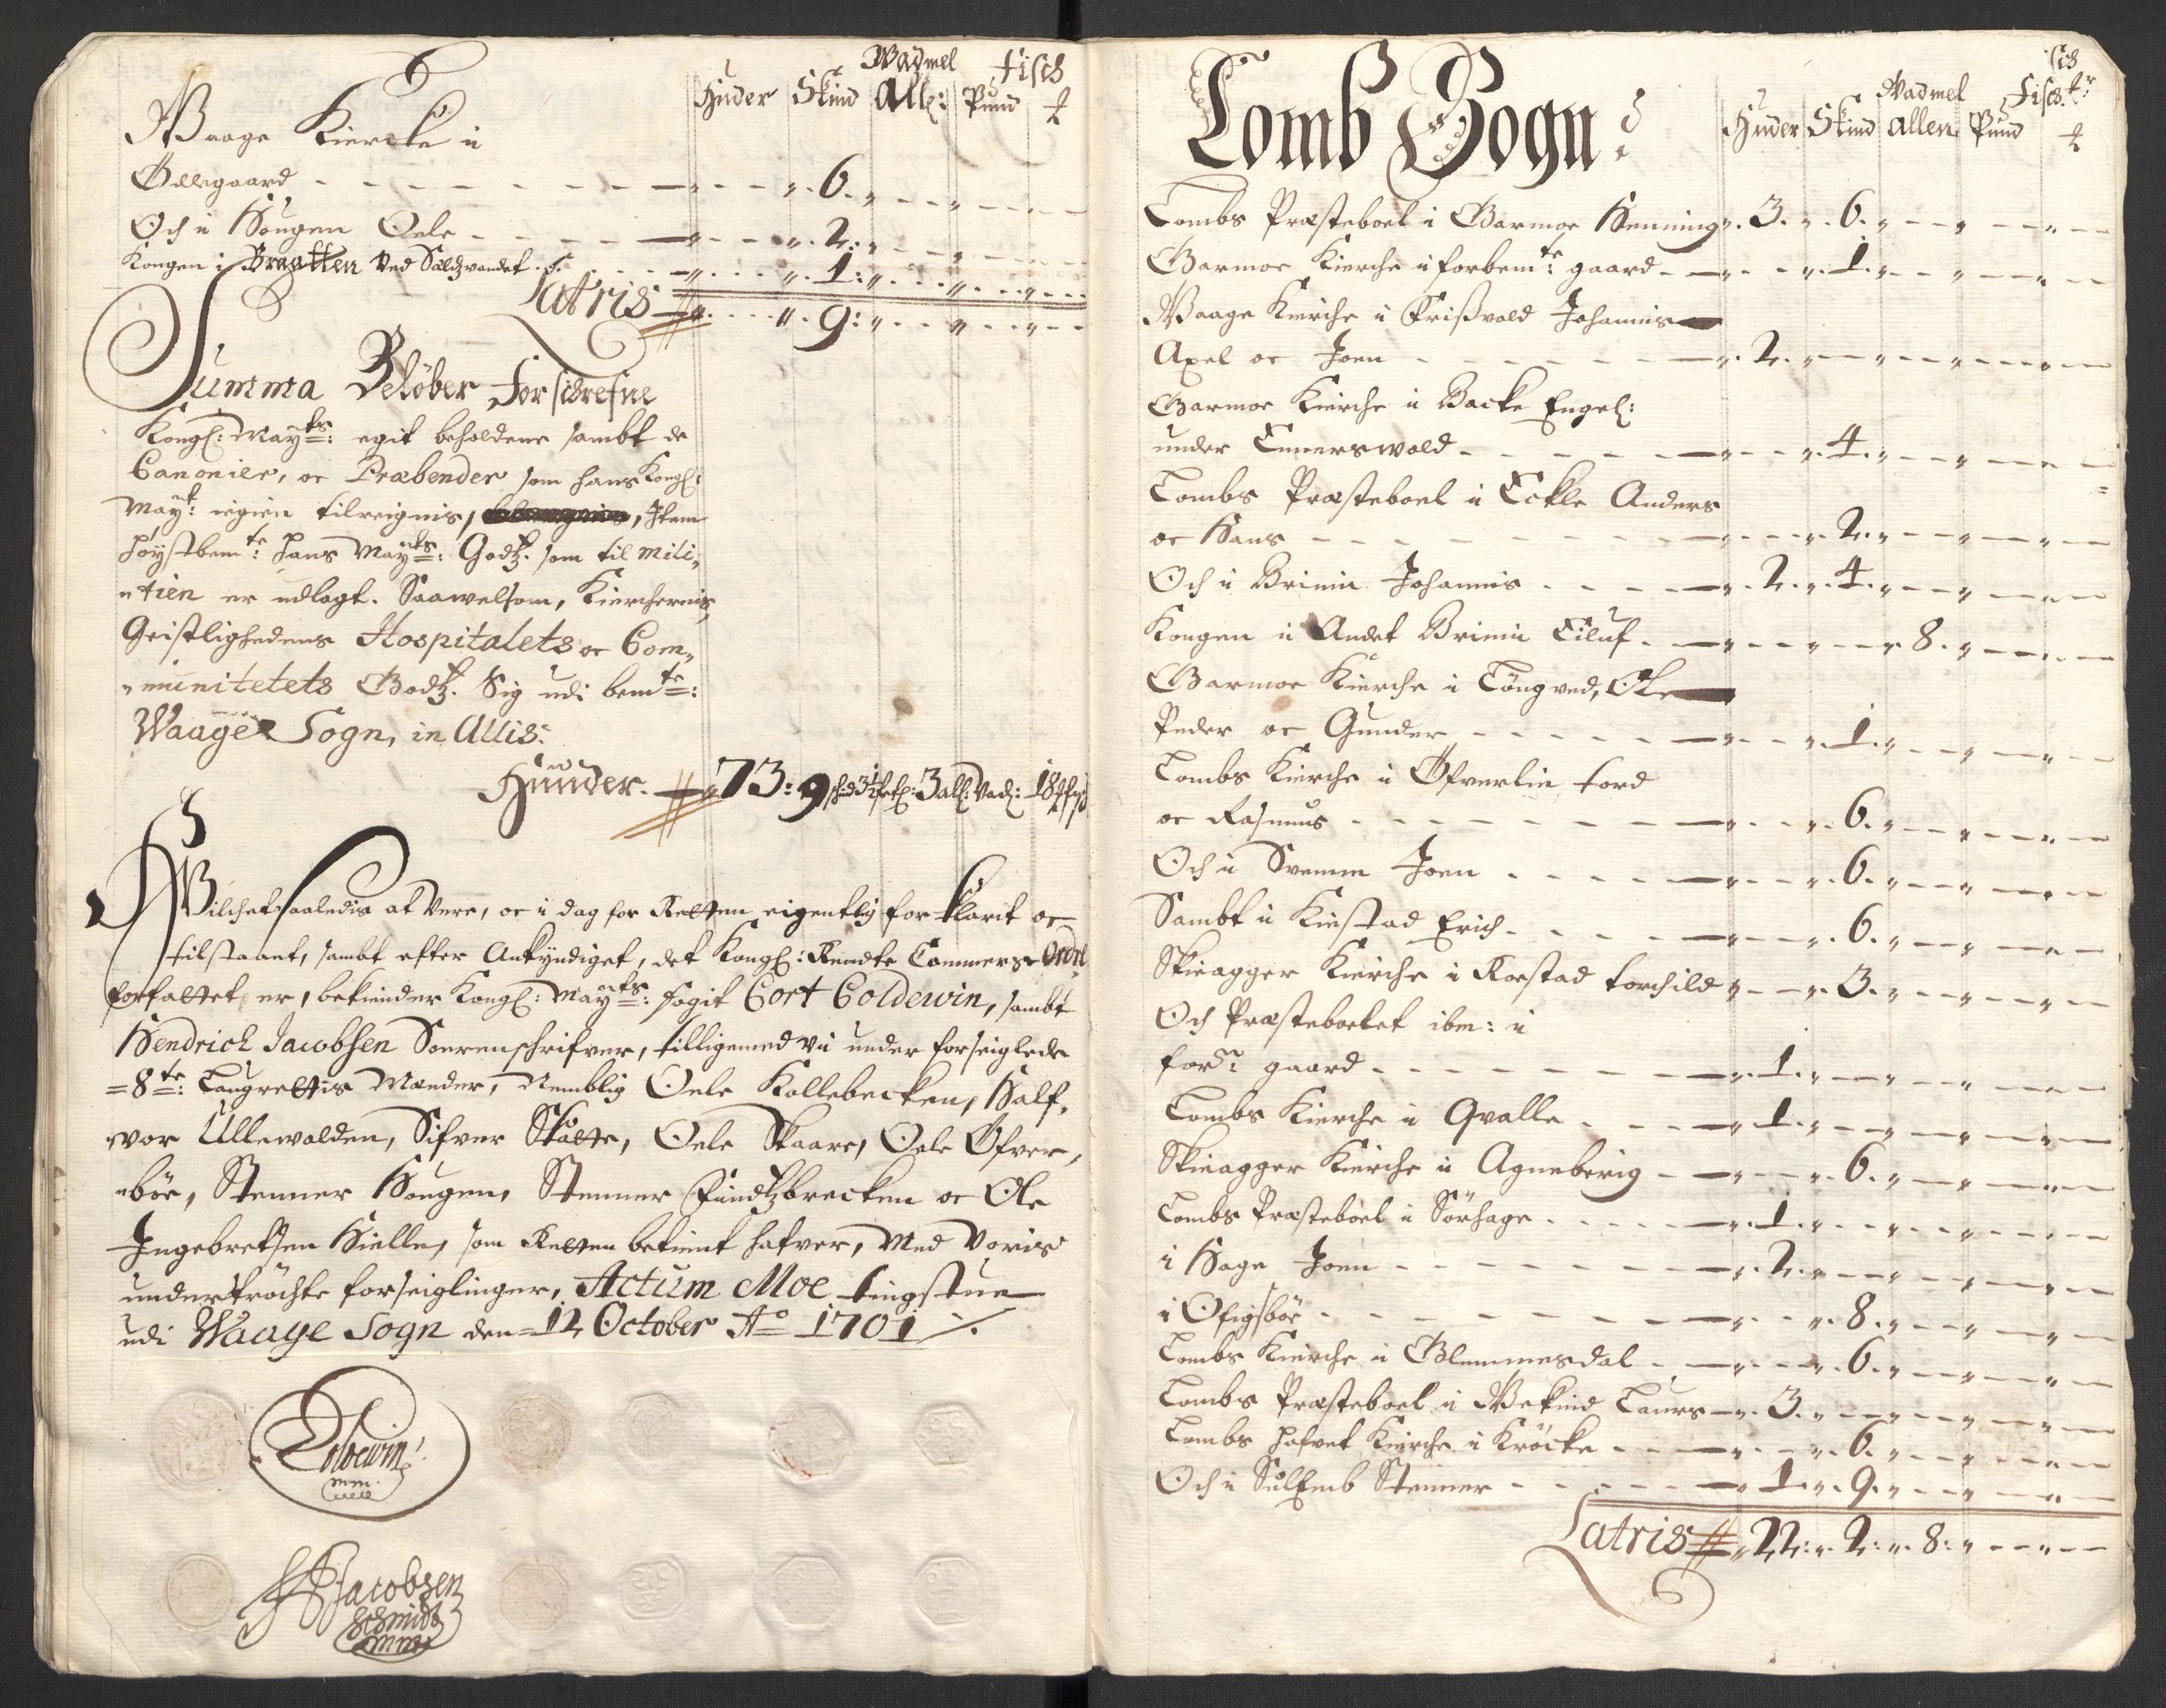 Huder Skind Wadmel All: Fisch Pund ℔
Waage Kiercke i
Ødegaard - - - 6.
Och i Hougen Oele - - - 2.
Kongen i Braatten Ved Sælsvandet - - - 1:
Latris - - - 9:
Summa Beløber Forschrefne
Kongl: Mayts: egit beholdene sambt de
Canonier, oc Præbender som hans Kongl:
Mayt: iegien tilreignis, Item
høystbemte: hans Mayts: Godtz. som til mili:
„tien er udlagt. Saawelsom, Kierchernis,
Geistlighedens Hospitalets oc Com„
„munitetets Godtz. Sig udi bemte:
Waage Sogn, in Allis:
Hünder. 73: 9
Wilchet saaledis at Vere, oc i dag for Retten eigentlig forklarit oc
tilstaaet, sambt efter Ankyndiget, det Kongl: Rendte Cammers Ordre
forfattet er, bekiender Kongl: Mayts: fogit Cort Coldewin, sambt
Hendrich Jacobsen Sorenschrifver, tilligemed Vii under forseiglede
=8te: Laugrettis Mænder, Nemblig Oele Kollebecken, Half„
„vor Ullewolden, Sifver Skåtte, Oele Skaare, Oele Øfver„
„bøe, Stenner Hougen, Stenner Sundtzbrecken oc Ole
Ingebretsen Hielle, som Retten betient hafver, Med Voris
undertröchte forseiglinger, Actum Moe tingstue
udi Waage Sogn den 12 October Ao 1701 ./.
Coldewin
mm.
HJacobsen
Schmidt
mm
Lomb Sogn:
Huder Skind Wadmel allen Pund Fisch ℔
Lombs Præsteboel i Garmoe Henning 3. 6.
Garmoe Kierche i forbemte: gaard - - - 1.
Waage Kierche i Frisvold Johannis
Axel oc Joen - - - 2.
Garmoe Kierche i Backe Engel:
under Ennerswold - - - 4.
Lombs Præsteboel i Eckle Anders
oc Hans - - - 2.
Och i Brimin Johannis - - - 2. 4.
Kongen i Andet Brimin Eiluf - - - 8.
Garmoe Kierche i Tøngved, Ole
Peder oc Gunder - - - 1.
Lombs Kierche i Øfverlie tord
oc Rasmus - - - 6.
Och i Svemm Joen - - - 6.
Sambt i Kiestad Erich - - - 6.
Skieagger Kierche i Rorstad torchild - - - 3.
Och Præsteboelet ibm: i
forn: gaard - - - 1.
Lombs Kierche i Qvalle - - - 1.
Skieagger Kierche i Agneberig - - - 6.
Lombs Præsteboel i Sörhage - - - 1.
i Hage Joen - - - 2.
i Ofigsböe - - - 8.
Lombs Kierche i Glemmesdal - - - 6.
Lombs Præsteboel i Wekind Laurs - - - 3.
Lombs hofvet Kierche i Kröcke - - - 6.
Och i Sulhemb Stenner - - - 1. 9.
Latris 22: 2: 8: